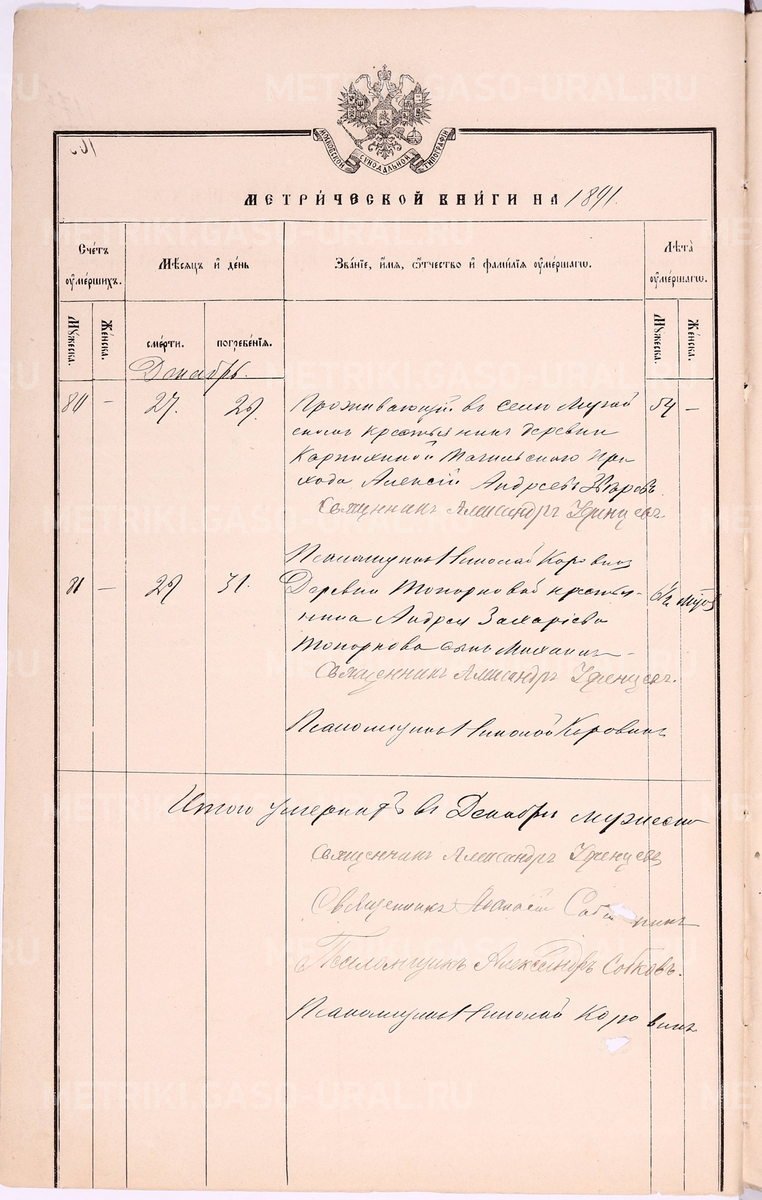 МОСКОВСКОЙ СѴНОДАЛЬНОЙ ТИПОГРАФІИ
МЕТРИ́ЧЕСКОЙ КНИ́ГИ НА 1891.
Сче́тъ ᲂу҆ме́ршихъ.
Мѣ́сяцъ и҆ де́нь
Зва́нїе, и҆́мѧ, ѻ҆́тчество и҆ фами́лїѧ ᲂу҆ме́ршагѡ.
Лѣ́та ᲂу҆ме́ршагѡ.
Мꙋ́жеска.
Же́нска.
сме́рти.
погребе́нїѧ.
Мꙋ́жеска.
Же́нска.
Декабрь.
80 – 27. 29. Проживающій въ селѣ Мугай 54 –
скомъ крестьянинъ деревни
Карпихиной Тагильского при
хода Алексій Андреевъ
Священникъ Александръ Удинцевъ.
Псаломщикъ Николай Коровинъ
81 – 29 31. Деревни Топорковой крестья-
нина Андрея Захаріева
Топоркова сынъ Михаилъ –
Священникъ Александръ Удинцевъ.
Псаломщикъ Николай Коровинъ
Итого умершихъ въ Декабрѣ мужеска
Священникъ Александръ Удинцевъ
Священникъ
Псаломщикъ Александръ
Псаломщикъ Николай Коровинъ
METRIKI.GASO-URAL.RU